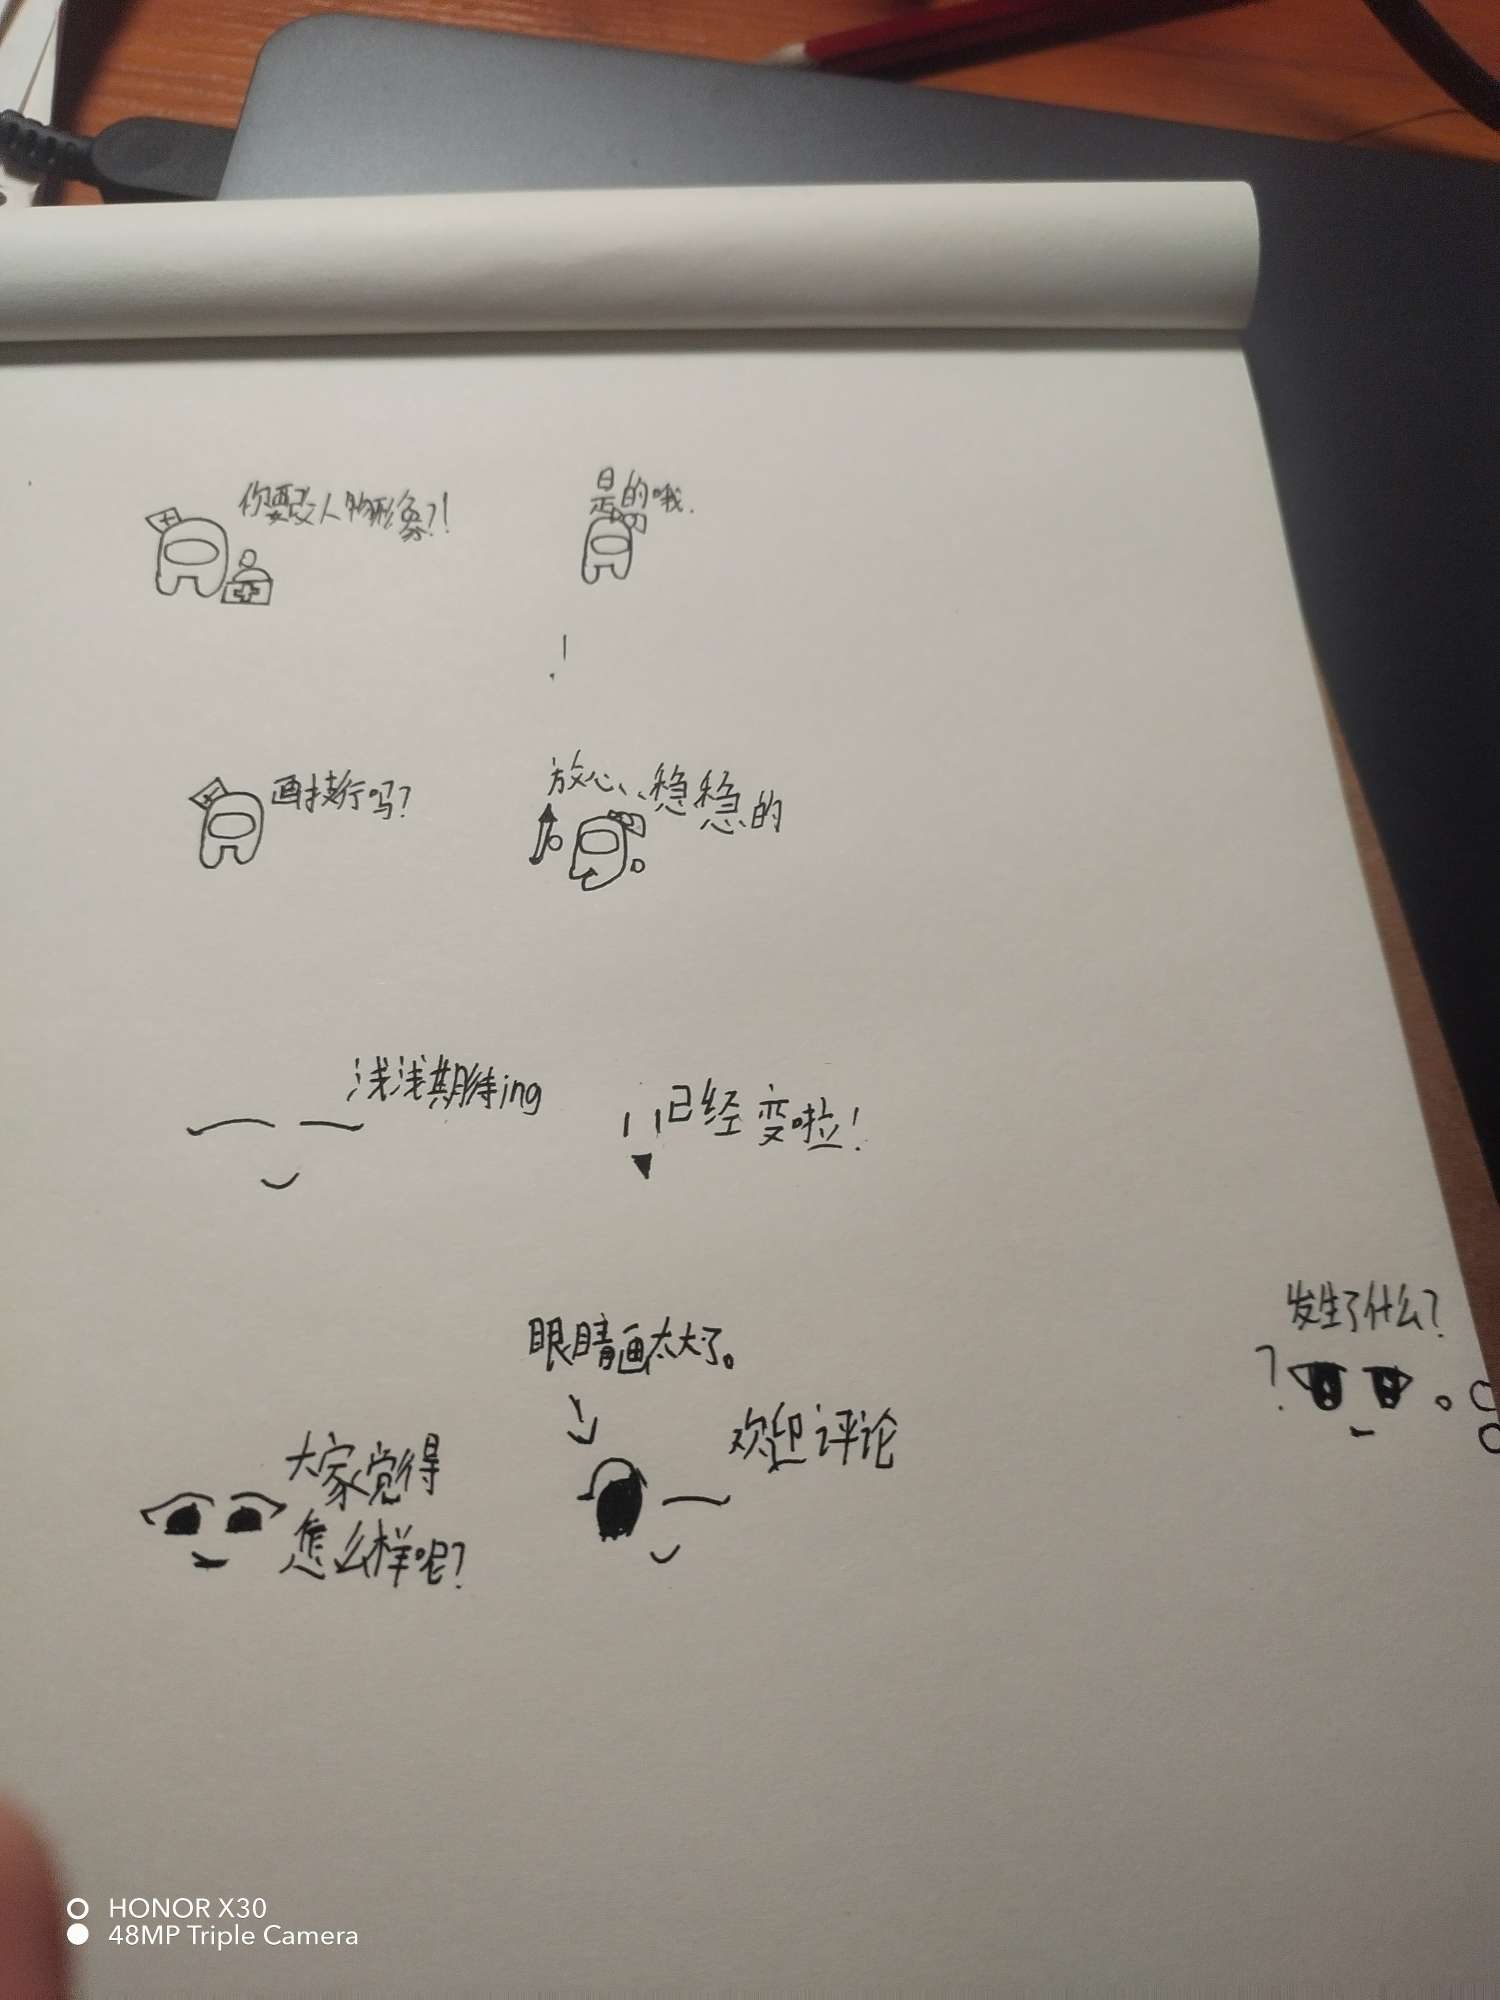 你要改人物形象?!
是的哦.
画技行吗?
放心、稳稳的
浅浅期待ing
已经变啦!
发生了什么?
?
眼睛画太大了。
欢迎评论
大家觉得
怎么样呢?
HONOR X30
48MP Triple Camera